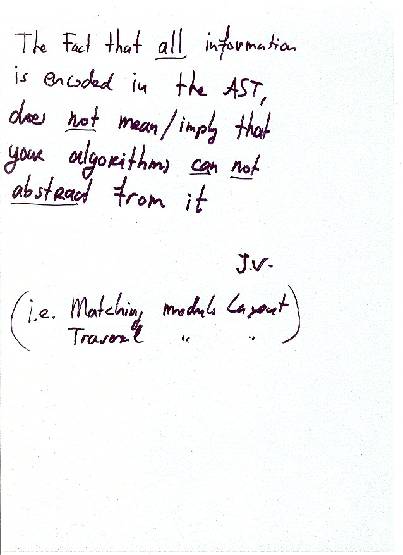 The Fact that all information
is encoded in the AST,
does not mean/imply that
your algorithms can not
abstract from it
J.V.
(i.e. Matching modulo Layout
Traversal " ")